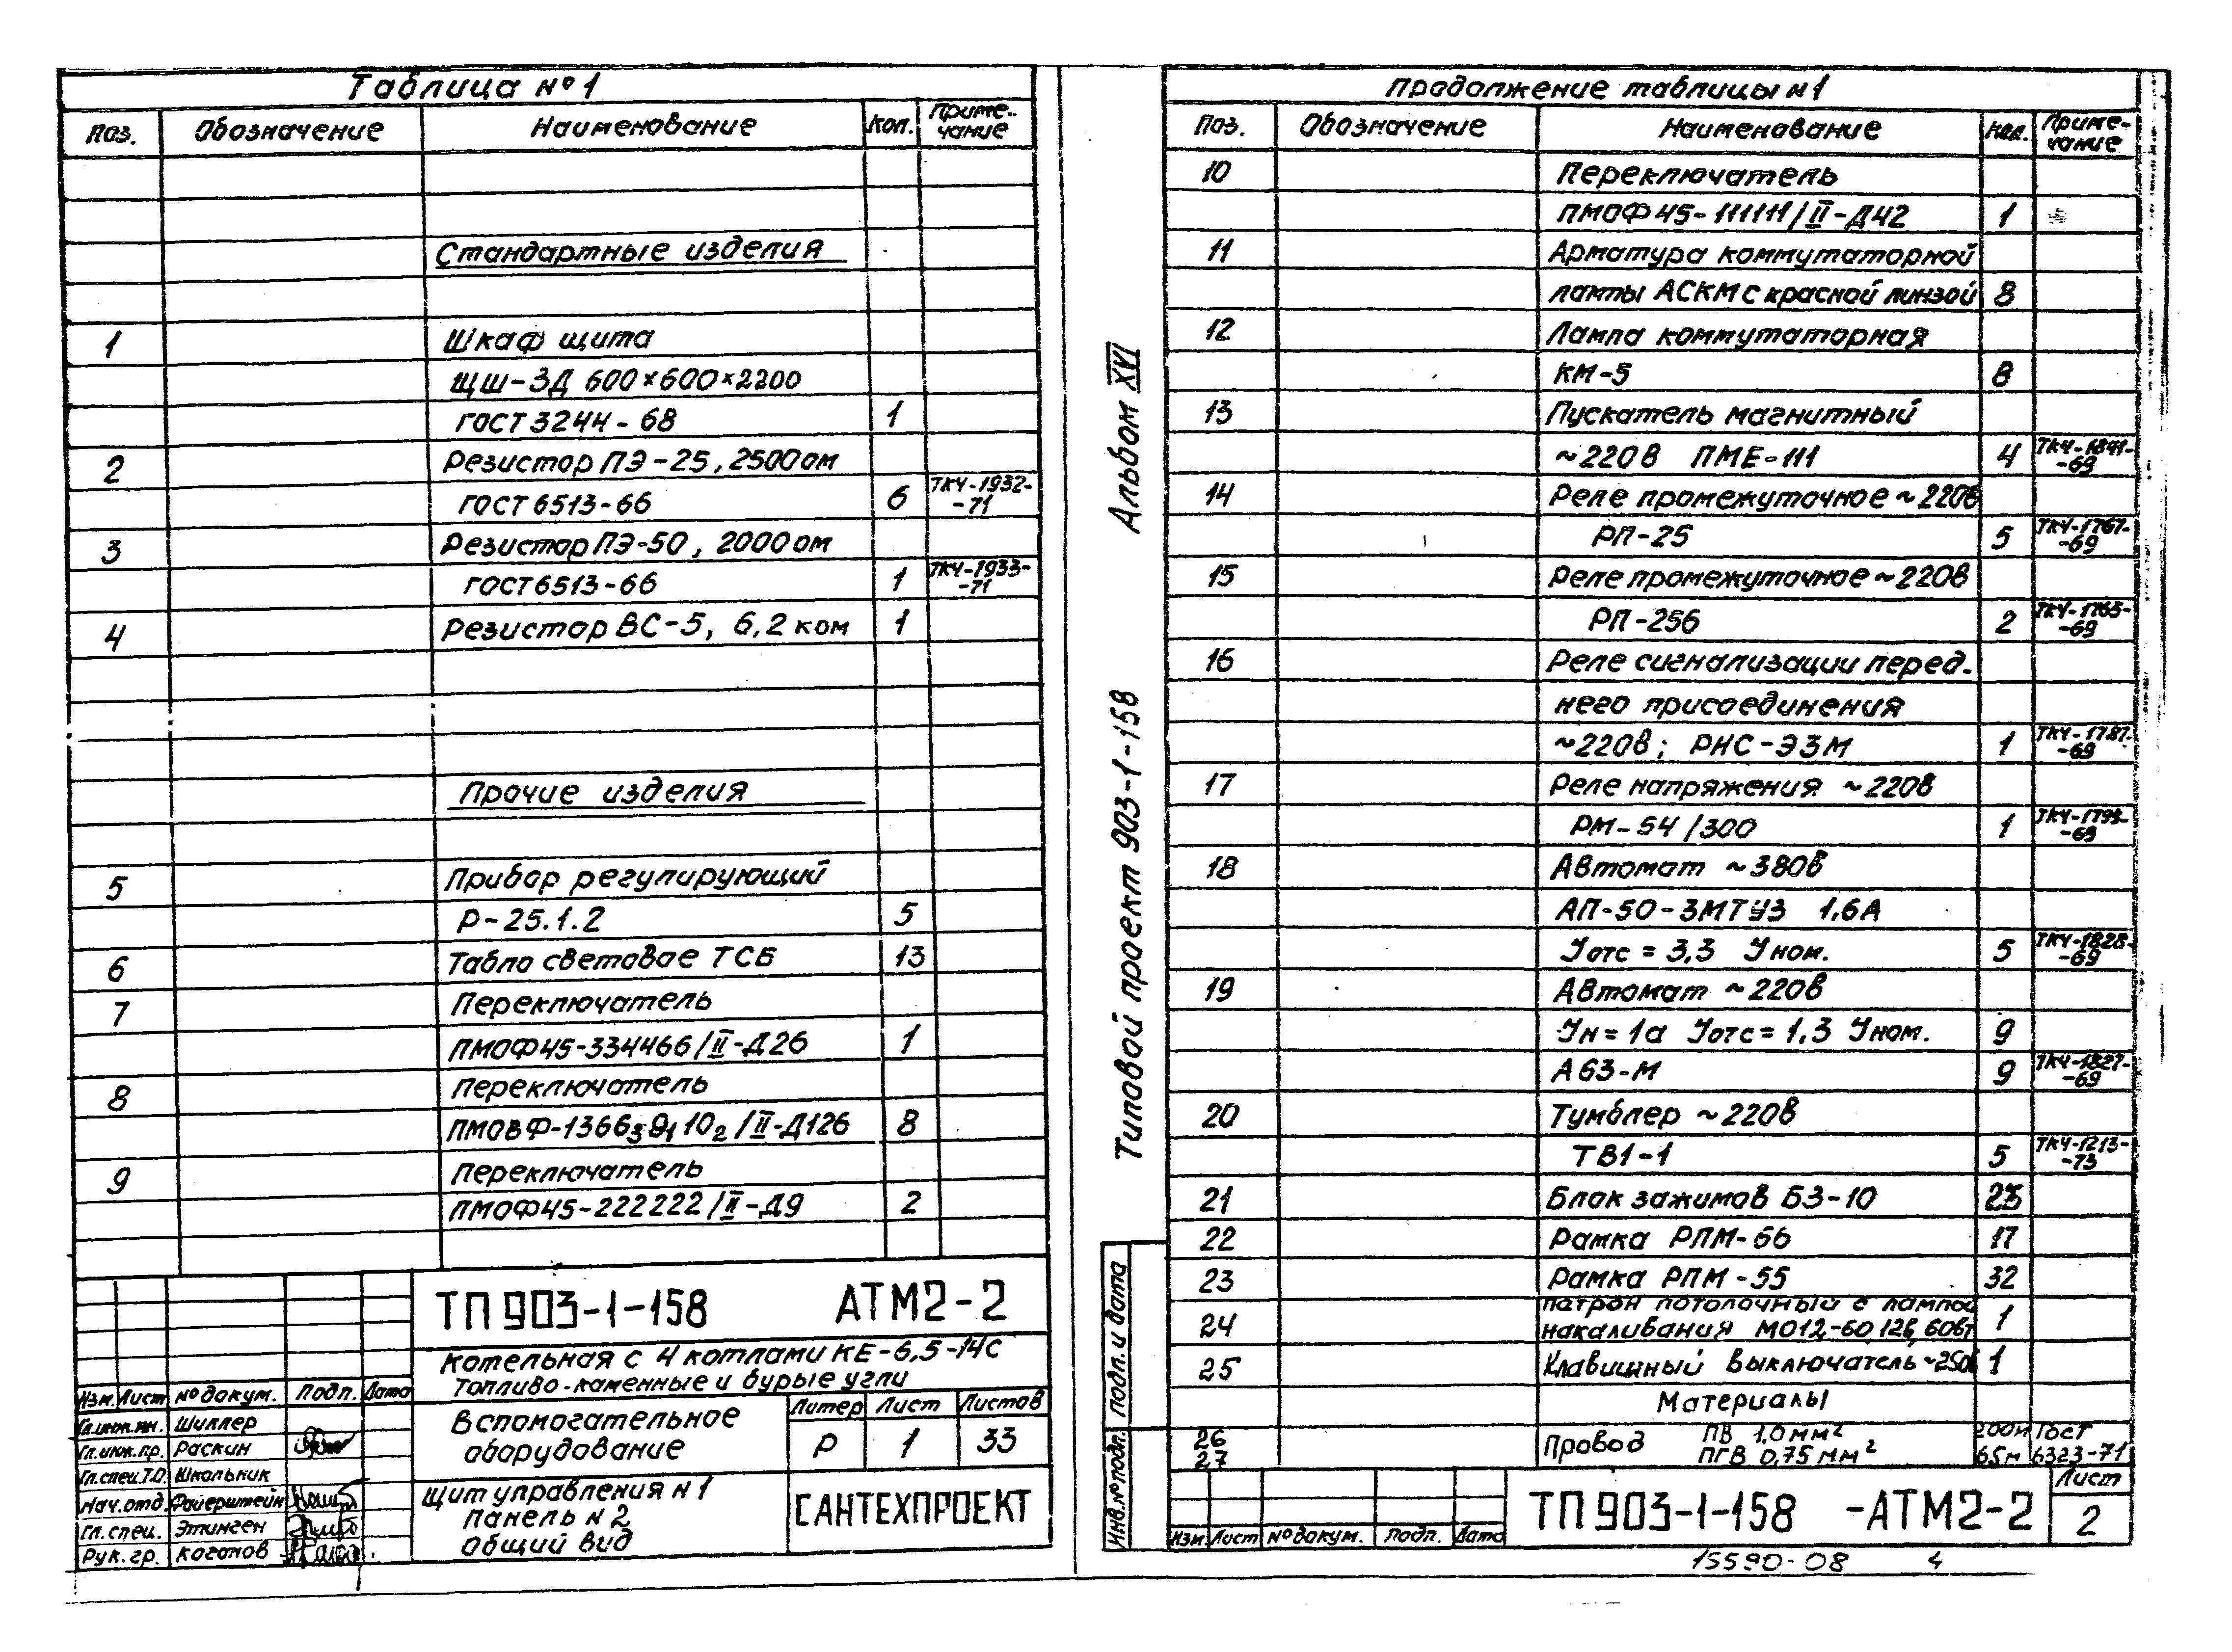 Таблица № 1
Поз. Обозначение Наименование Кол. Приме-
чание
Стандартные изделия
1 Шкаф щита
ЩШ-ЗД 600×600×2200
ГОСТ 3244-68 1
2 Резистор ПЭ-25, 2500 ом
ГОСТ 6513-66 6 ТКЧ-1932-
-71
3 Резистор ПЭ-50, 2000 ом
ГОСТ 6513-66 1 ТКЧ-1933-
-71
4 Резистор ВС-5, 6,2 ком 1
Прочие изделия
5 Прибор регулирующий
Р-25.1.2 5
6 Табло световое ТСБ 13
7 Переключатель
ПМОФ45-334466/II-Д26 1
8 Переключатель
ПМОВФ-1366₃9₁10₂/II-Д126 8
9 Переключатель
ПМОФ45-222222/II-Д9 2
ТП 903-1-158 АТМ2-2
Котельная с 4 котлами КЕ-6,5-14С
Топливо-каменные и бурые угли
Изм. Лист № докум. Подп. Дата
Гл.инж.ин. Шиллер
Гл.инж.пр. Раскин
Гл.спец.Т.О. Школьник
Нач.отд. Файерштейн
Гл.спец. Этинген
Рук.гр. Коганов
Вспомогательное
оборудование
Литер Лист Листов
Р 1 33
Щит управления № 1
Панель № 2
Общий вид
САНТЕХПРОЕКТ
Альбом XVI
Типовой проект 903-1-158
Подп. и дата
Инв.№ подл.
Продолжение таблицы № 1
Поз. Обозначение Наименование Кол. Приме-
чание
10 Переключатель
ПМОФ45-111111/II-Д42 1
11 Арматура коммутаторной
лампы АСКМ с красной линзой 8
12 Лампа коммутаторная
КМ-5 8
13 Пускатель магнитный
~220В ПМЕ-111 4 ТКЧ-1841-
-69
14 Реле промежуточное ~220в
РП-25 5 ТКЧ-1767-
-69
15 Реле промежуточное ~220в
РП-256 2 ТКЧ-1765-
-69
16 Реле сигнализации перед-
него присоединения
~220в; РНС-ЭЗМ 1 ТКЧ-1787-
-69
17 Реле напряжения ~220в
РМ-54/300 1 ТКЧ-1793-
-69
18 Автомат ~380в
АП-50-3МТУЗ 1,6А
Jотс = 3,3 Jном. 5 ТКЧ-1828-
-69
19 Автомат ~220в
Jн = 1а Jотс = 1,3 Jном. 9
А63-М 9 ТКЧ-1827-
-69
20 Тумблер ~220в
ТВ1-1 5 ТКЧ-1213-
-73
21 Блок зажимов БЗ-10 23
22 Рамка РПМ-66 17
23 Рамка РПМ-55 32
24 Патрон потолочный с лампой
накаливания МО12-60, 12в, 60вт 1
25 Клавишный выключатель ~250в 1
Материалы
26 Провод ПВ 1,0 мм² 200м ГОСТ
27 ПГВ 0,75 мм² 65м 6323-71
Изм. Лист № докум. Подп. Дата
ТП 903-1-158 -АТМ2-2
Лист
2
15590-08 4